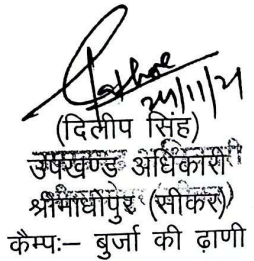 24/11/21
(दिलीप सिंह)
उपखण्ड अधिकारी
श्रीमाधोपुर (सीकर)
कैम्पः– बुर्जा की ढ़ाणी